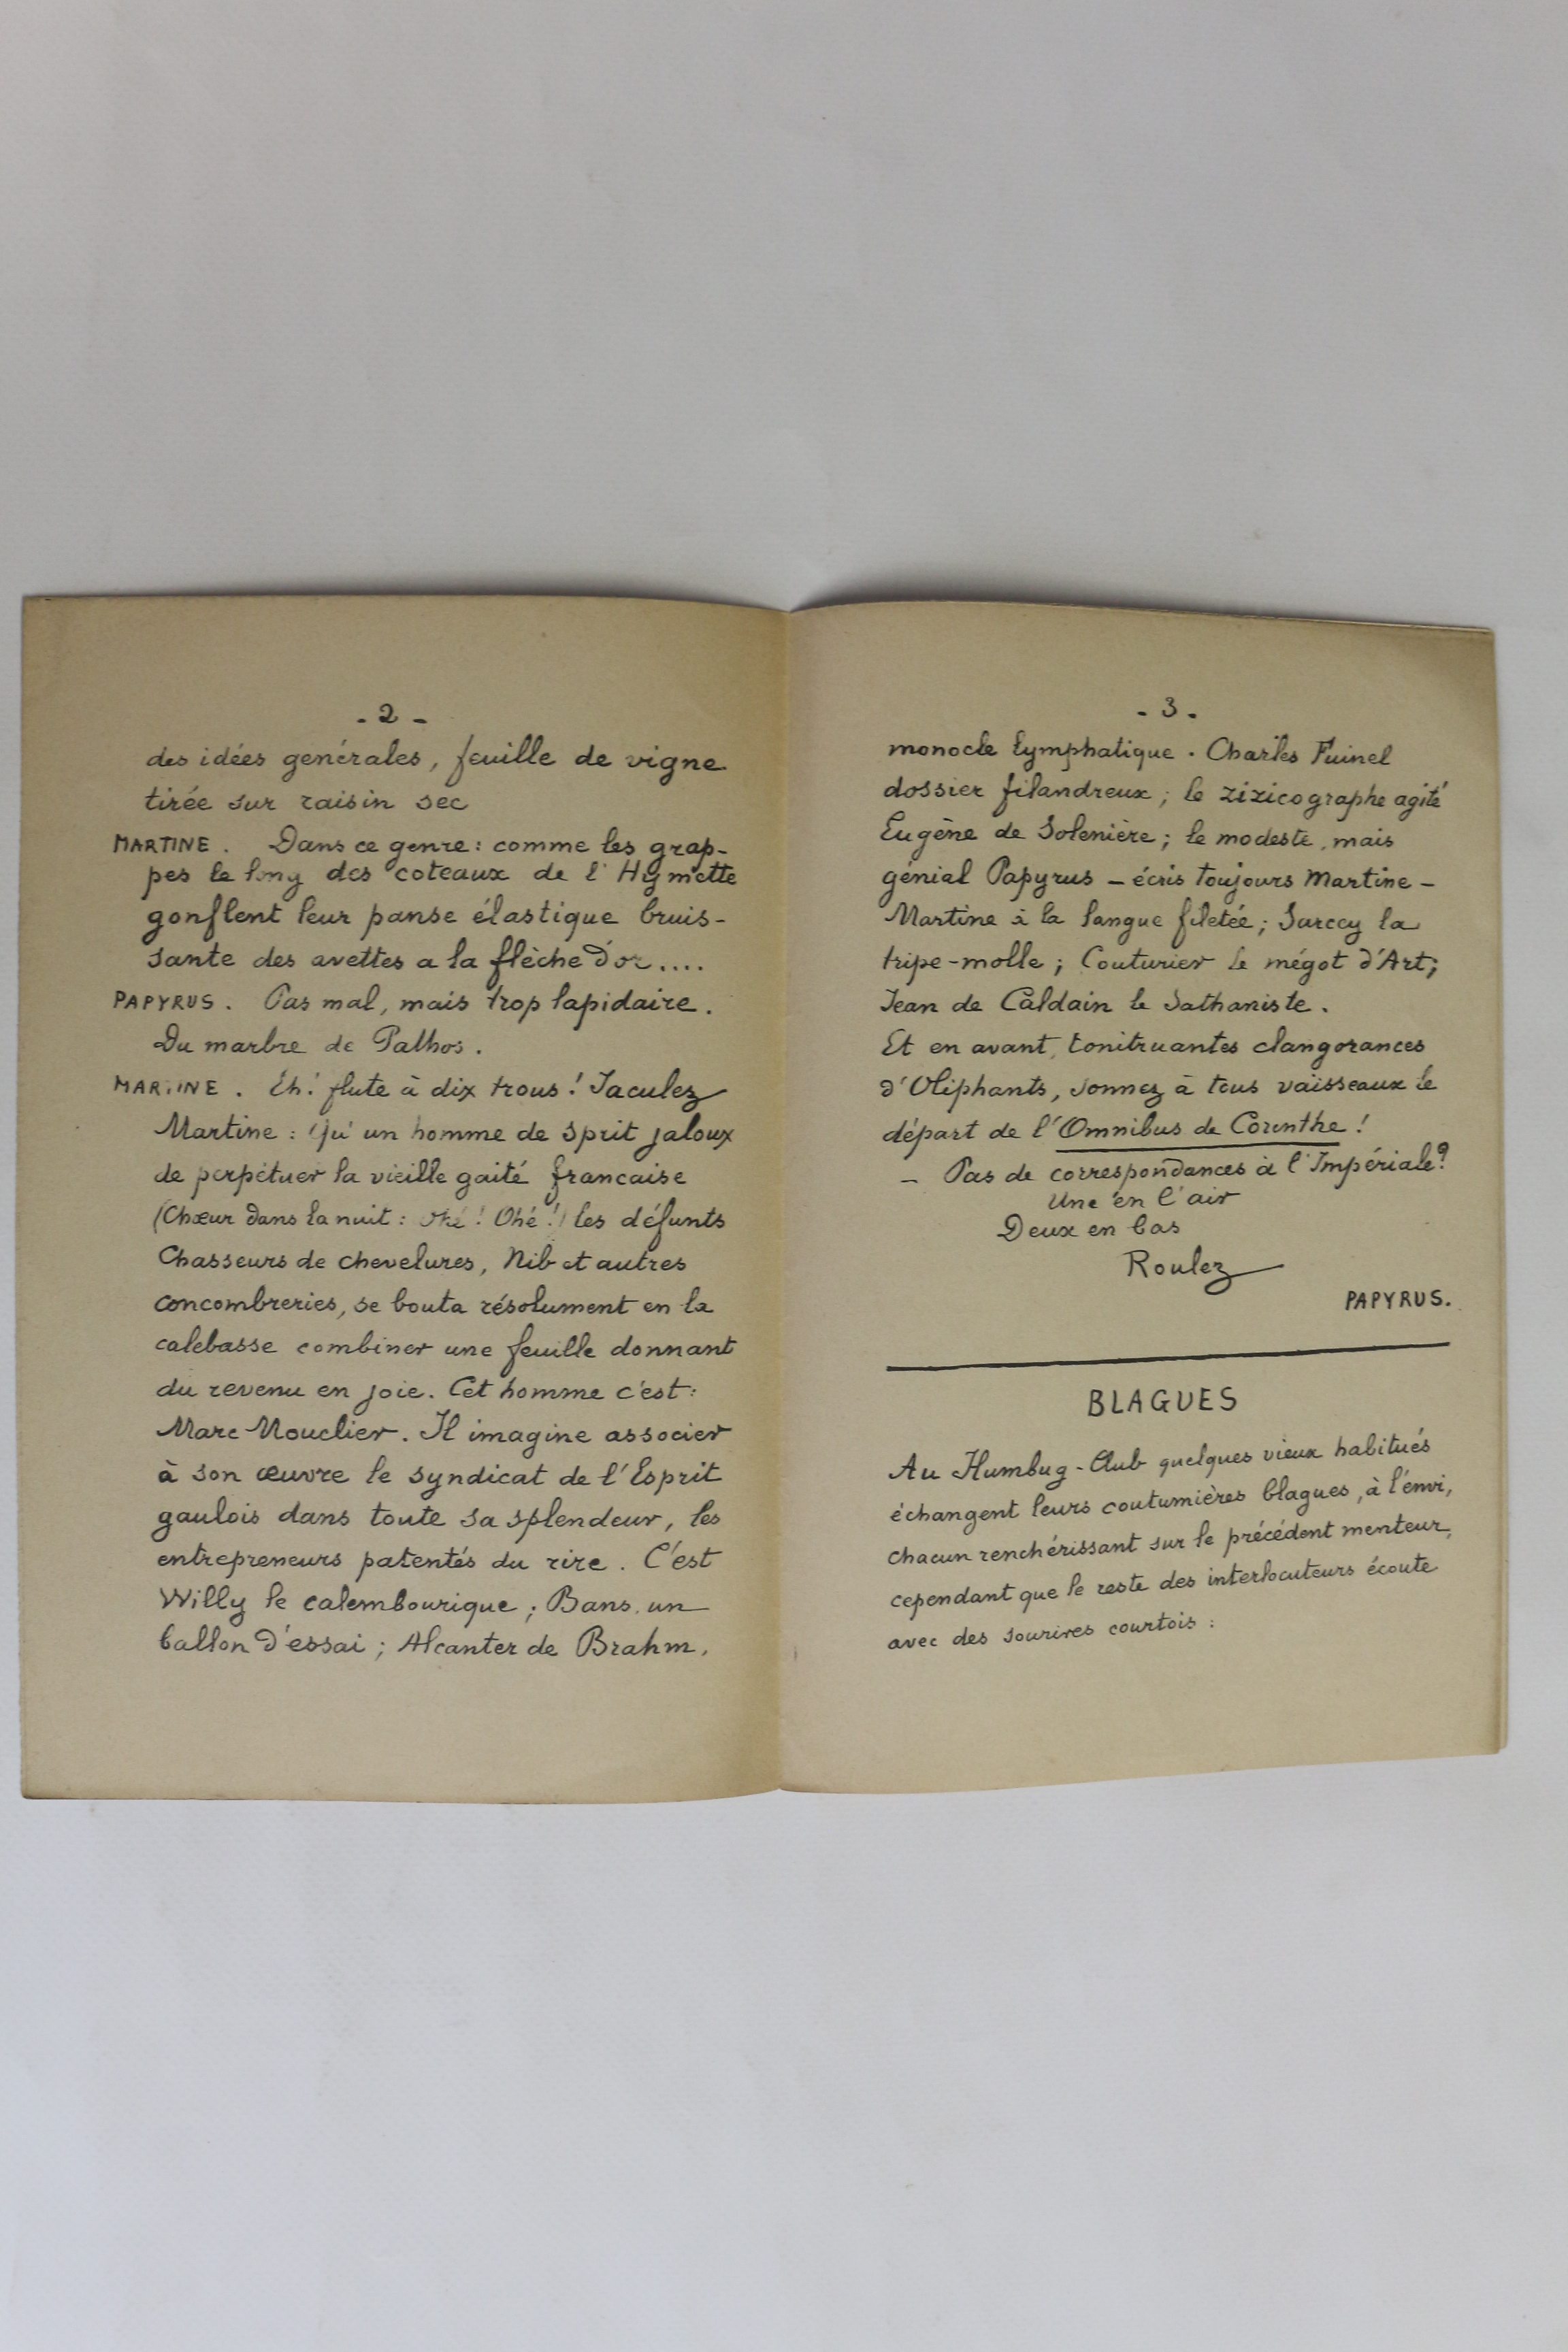 - 2 -
des idées genérales, feuille de vigne
tirée sur raisin sec
MARTINE. Dans ce genre : comme les grap-
pes le long des coteaux de l'Hymette
gonflent leur panse élastique bruis-
sante des avettes a la flèche d'or....
PAPYRUS. Pas mal, mais trop lapidaire.
Du marbre de Pathos.
MARTINE. Eh ! flute à dix trous ! Jaculez
Martine : Qu'un homme de sprit jaloux
de perpétuer la vieille gaité francaise
(Chœur dans la nuit : Ohé ! Ohé !) les défunts
Chasseurs de chevelures, Nib et autres
concombreries, se bouta résolument en la
calebasse combiner une feuille donnant
du revenu en joie. Cet homme c'est :
Marc Mouclier. Il imagine associer
à son œuvre le syndicat de l'Esprit
gaulois dans toute sa splendeur, les
entrepreneurs patentés du rire. C'est
Willy le calembourique ; Bans, un
ballon d'essai ; Alcanter de Brahm,
- 3 -
monocle lymphatique. Charles Fuinel
dossier filandreux ; le zizicographe agité
Eugène de Solenière ; le modeste, mais
génial Papyrus - écris toujours Martine -
Martine à la langue filetée ; Sarcey la
tripe-molle ; Couturier le mégot d'Art ;
Jean de Caldain le Sathaniste.
Et en avant, tonitruantes clangorances
d'Oliphants, sonnez à tous vaisseaux le
départ de l'Omnibus de Corinthe !
- Pas de correspondances à l'Impériale ?
Une en l'air
Deux en bas
Roulez
PAPYRUS.
BLAGUES
Au Humbug-Club quelques vieux habitués
échangent leurs coutumières blagues, à l'envi,
chacun renchérissant sur le précédent menteur,
cependant que le reste des interlocuteurs écoute
avec des sourires courtois :